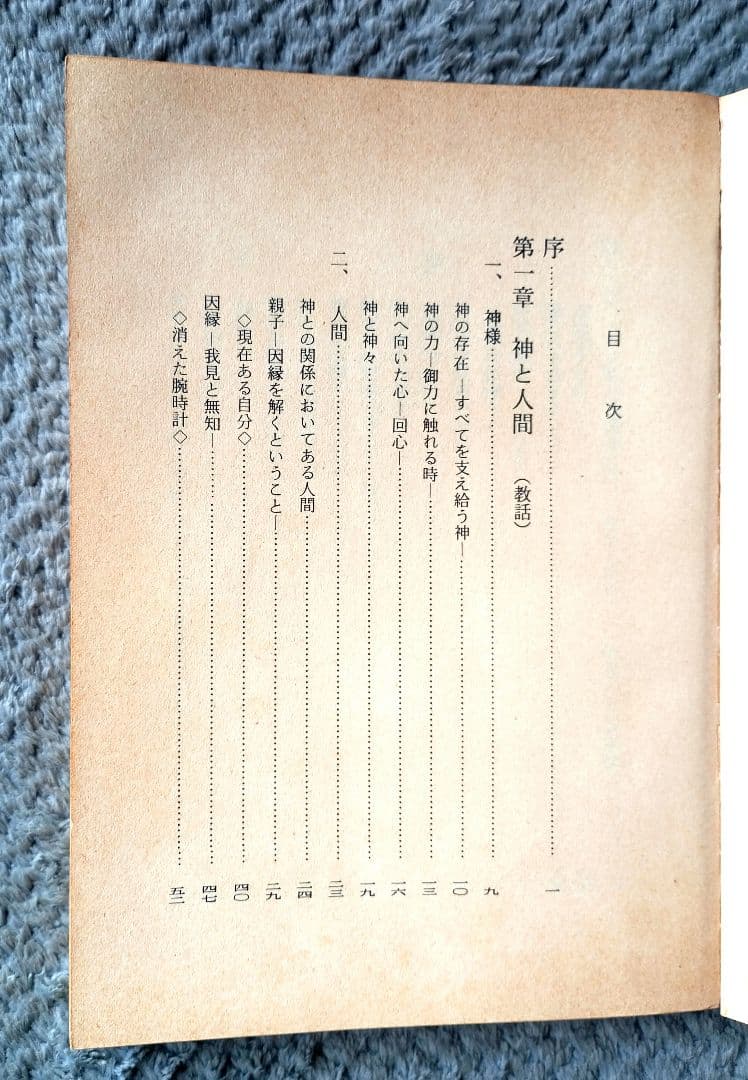 目次
序……………………………一
第一章　神と人間　（教話）
一、神様……………………………九
神の存在―すべてを支え給う神―……………………………一〇
神の力―御力に触れる時―……………………………一三
神へ向いた心―回心―……………………………一六
神と神々……………………………一九
二、人間……………………………二三
神との関係においてある人間……………………………二四
親子―因縁を解くということ―……………………………二九
◇現在ある自分◇……………………………四〇
因縁―我見と無知―……………………………四七
◇消えた腕時計◇……………………………五二